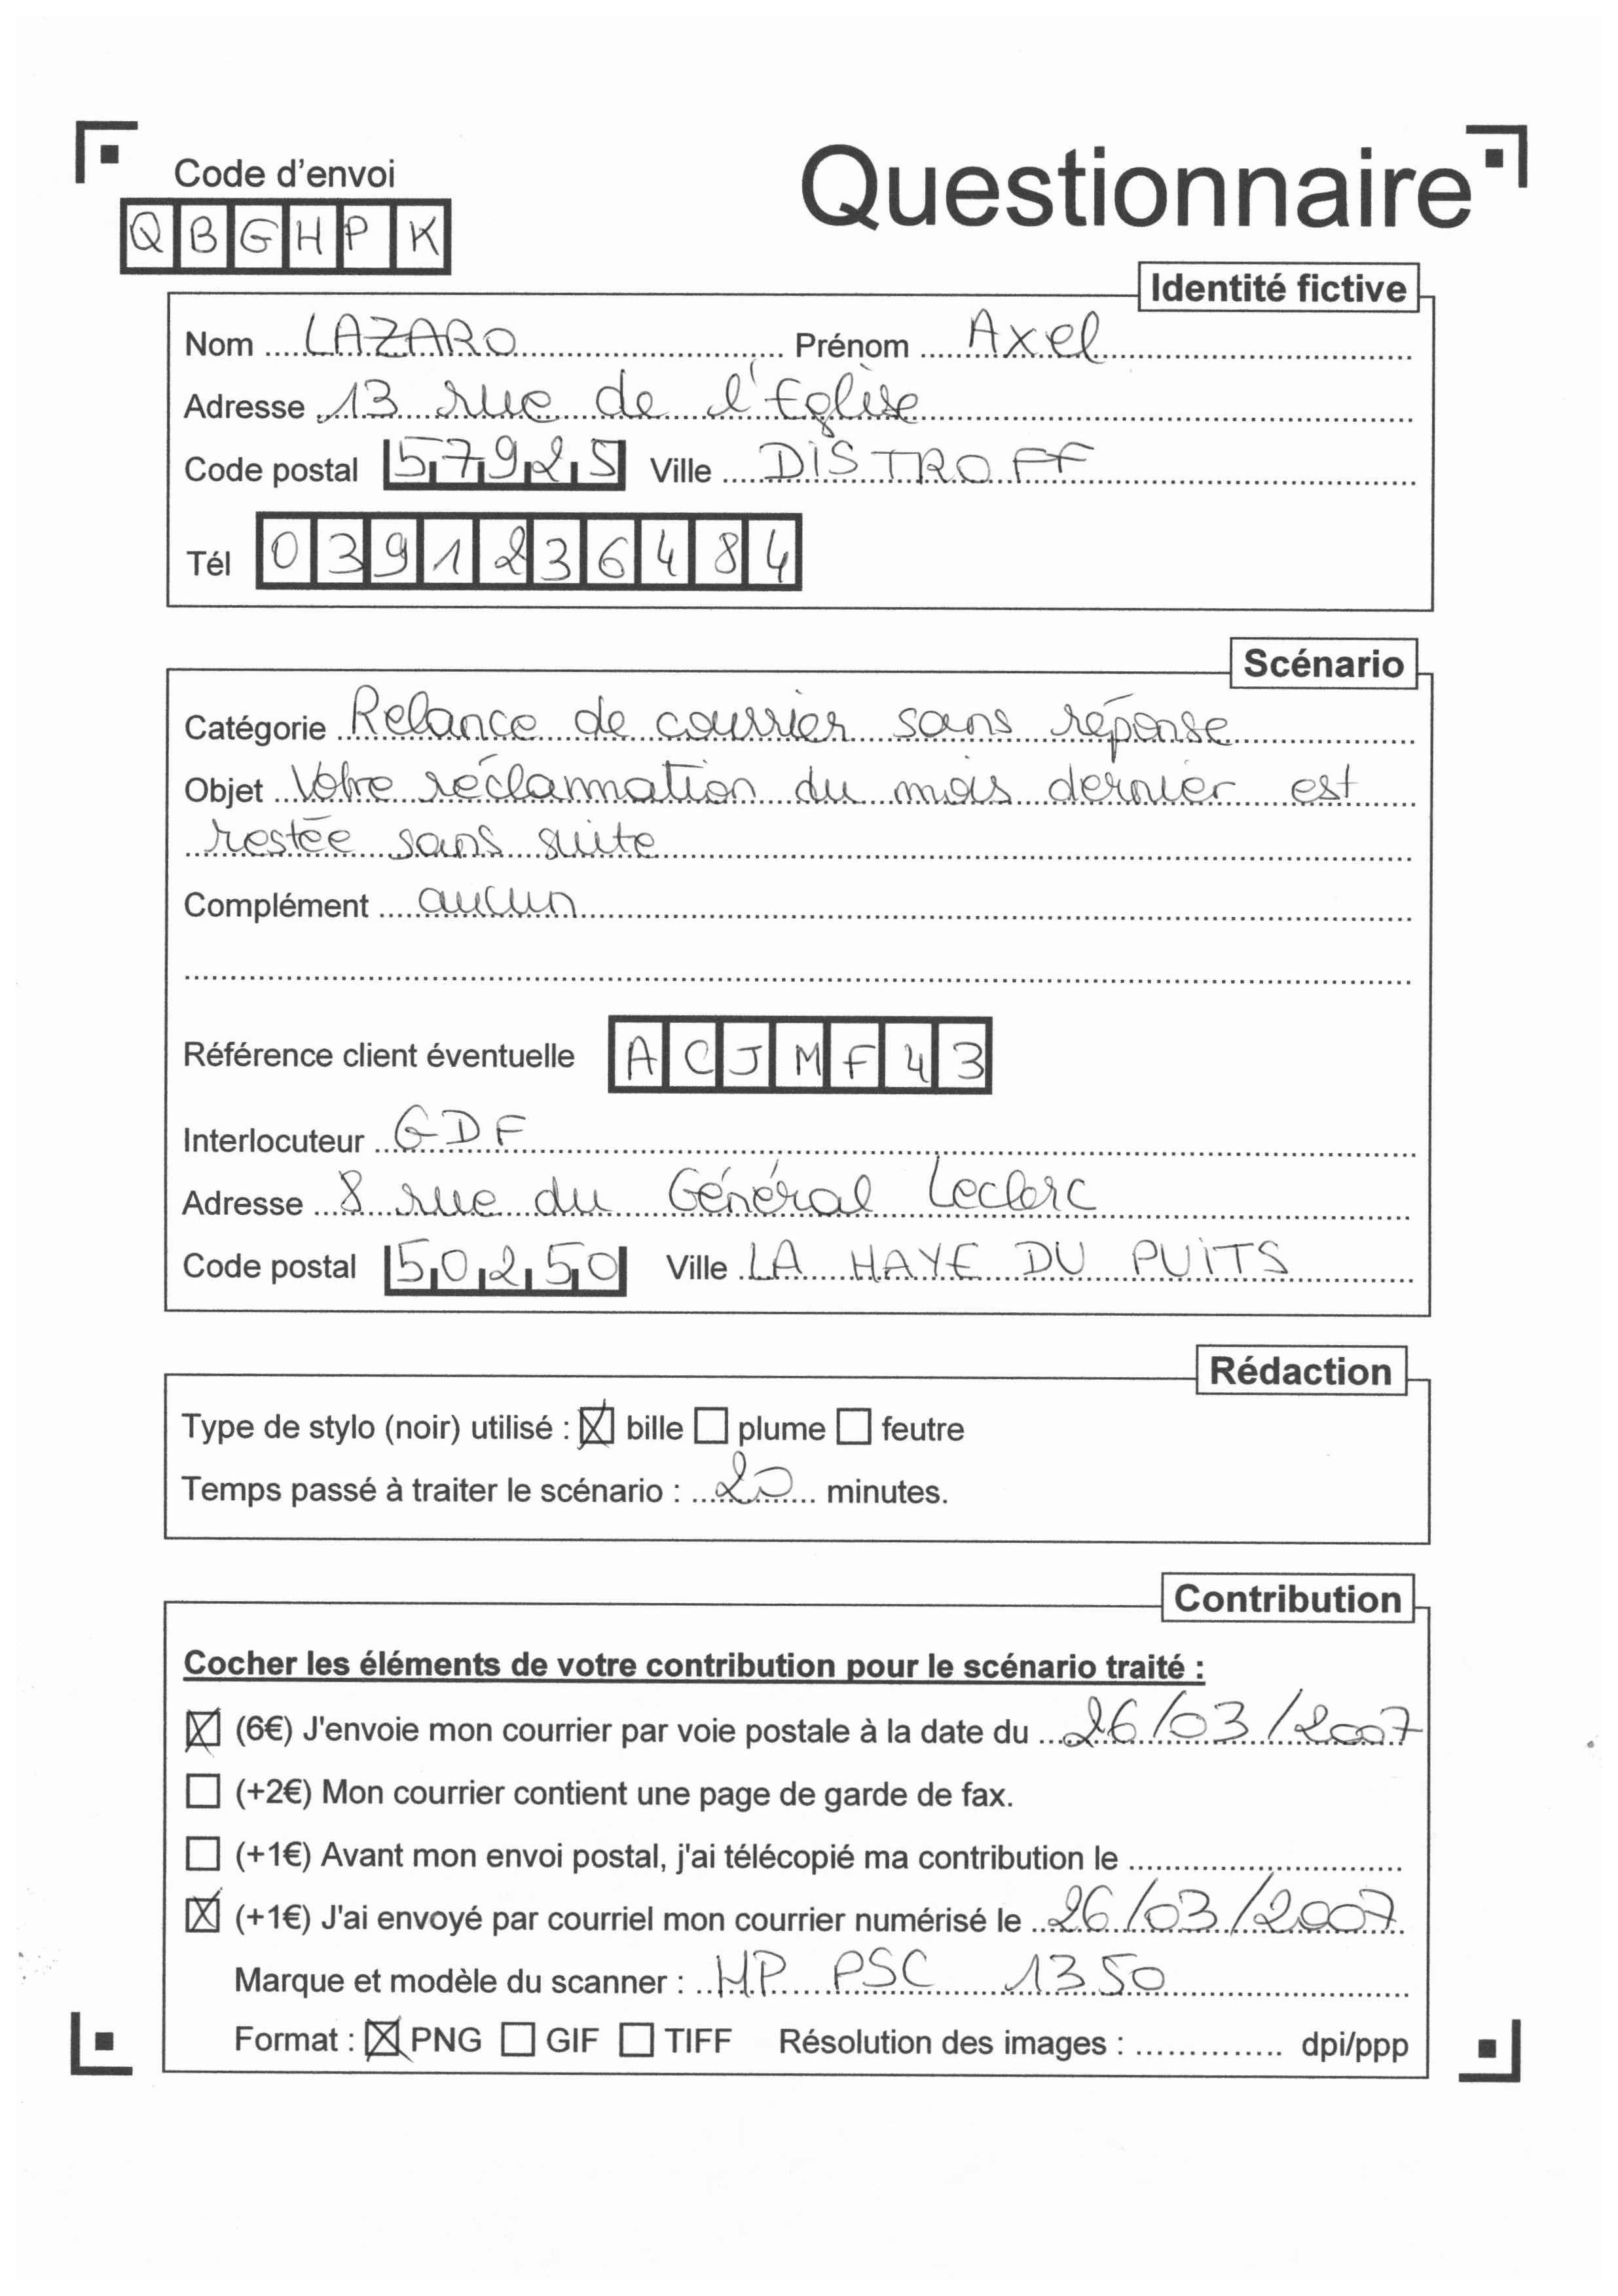 Code d'envoi
Questionnaire
QBGHPK
Identité fictive
Nom LAZARO Prénom Axel
Adresse 13 rue de l'Eglise
Code postal 57925 Ville DISTROFF
Tél 0391236484
Scénario
Catégorie Relance de courrier sans réponse
Objet Votre réclammation du mois dernier est
restée sans suite
Complément aucun
Référence client éventuelle ACJMF43
Interlocuteur GDF
Adresse 8 rue du Général Leclerc
Code postal 50250 Ville LA HAYE DU PUITS
Rédaction
Type de stylo (noir) utilisé : ☒ bille ☐ plume ☐ feutre
Temps passé à traiter le scénario : 20 minutes.
Contribution
Cocher les éléments de votre contribution pour le scénario traité :
☒ (6€) J'envoie mon courrier par voie postale à la date du 26/03/2007
☐ (+2€) Mon courrier contient une page de garde de fax.
☐ (+1€) Avant mon envoi postal, j'ai télécopié ma contribution le
☒ (+1€) J'ai envoyé par courriel mon courrier numérisé le 26/03/2007
Marque et modèle du scanner : HP PSC 1350
Format : ☒ PNG ☐ GIF ☐ TIFF Résolution des images : dpi/ppp